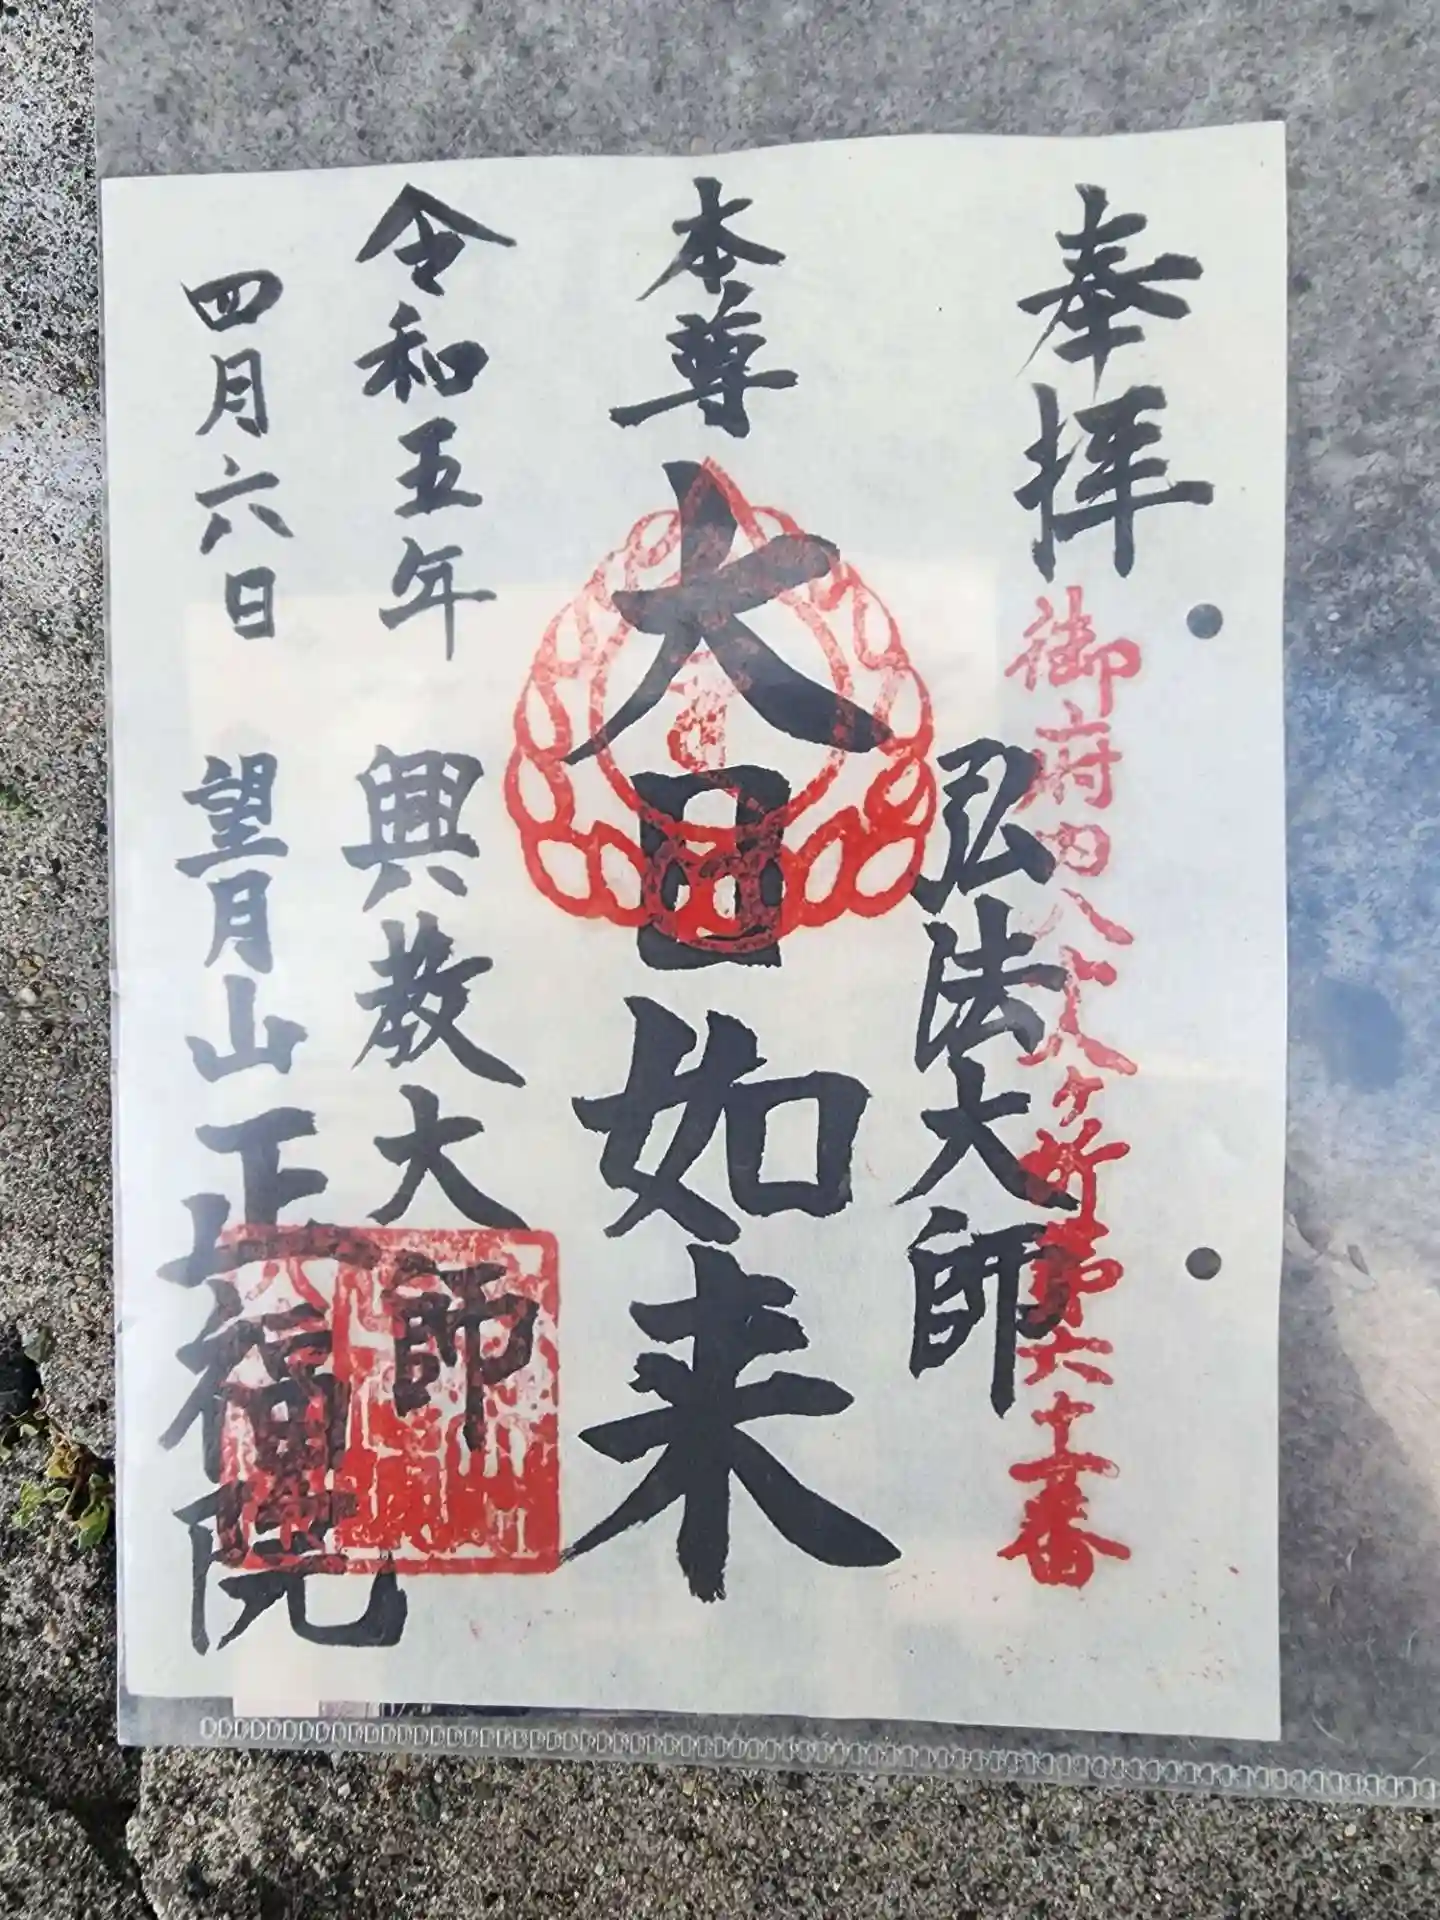 奉拝
御府内八十八ヶ所第六十一番
弘法大師
本尊
大日如来
令和五年
興教大師
四月六日
望月山
正福院